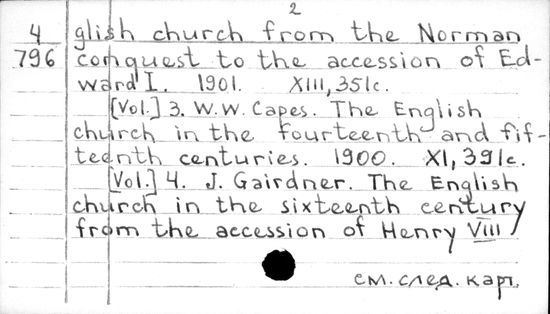 2
4 glish church from the Norman
796 conquest to the accession of Ed-
ward I. 1901. XIII, 351c.
[Vol.] 3. W.W. Capes. The English
church in the fourteenth and fif-
teenth centuries. 1900. XI, 391c.
[Vol.] 4. J. Gairdner. The English
church in the sixteenth century
from the accession of Henry VIII
см. след. карт.